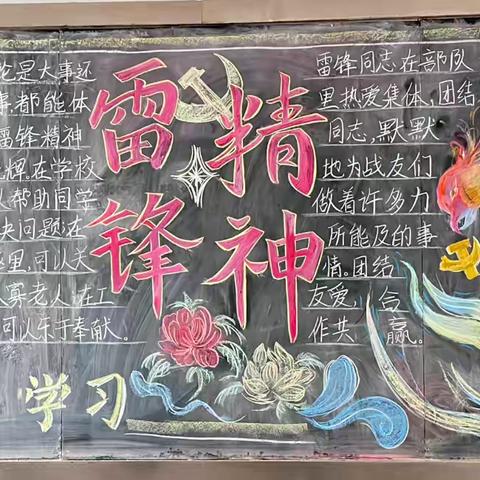 学习
雷锋
精神
论是大事还
事,都能体
雷锋精神
牌.在学校
以帮助同学
决问题;在
里,可以关
寡老人;在工
可以乐于奉献。
雷锋同志在部队
里热爱集体,团结
同志,默默
地为战友们
做着许多力
所能及的事
情。团结
友爱,合
作共赢。